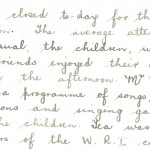 closed to-day for th
The average atte
sual, the children, w
riends enjoyed their
the afternoon. Mr
a programme of songs,
ons and singing ga
the children. Tea was
rs of the W.R.I. c